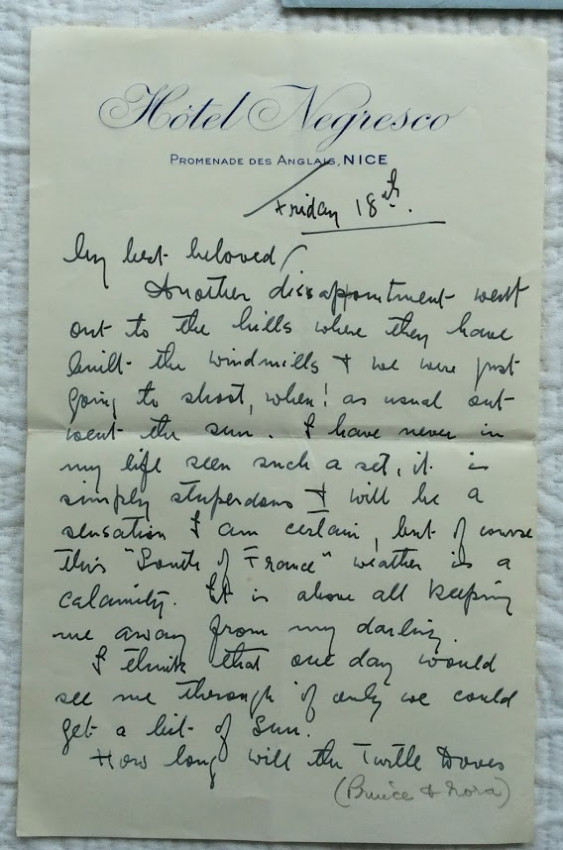 Hôtel Negresco
PROMENADE DES ANGLAIS, NICE
Friday 18th.
My best beloved/
Another dissapointment went
out to the hills where they have
built the windmills & we were just
going to shoot, when! as usual out
went the sun. I have never in
my life seen such a set, it is
simply stupendous & will be a
sensation I am certain, but of course
this "South of France" weather is a
calamity. It is above all keeping
me away from my darling.
I think that one day would
see me through if only we could
get a bit of sun.
How long will the Turtle Doves
(Bruice & Nora)